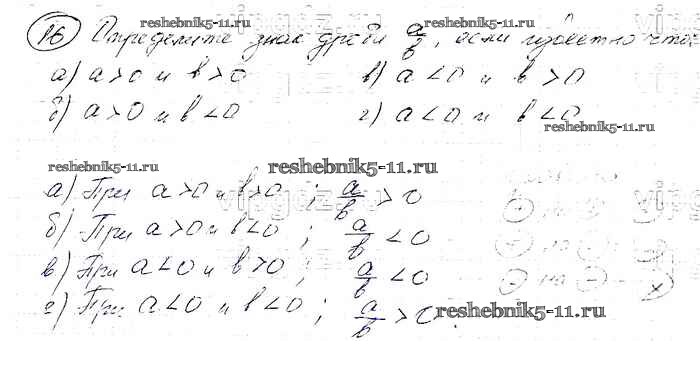 reshebnik5-11.ru reshebnik5-11.ru
16 Определите знак дроби a/b, если известно что:
а) a>0 и b>0 в) a<0 и b>0
б) a>0 и b<0 г) a<0 и b<0
reshebnik5-11.ru
reshebnik5-11.ru reshebnik5-11.ru
а) При a>0 и b>0 ; a/b >0
б) При a>0 и b<0 ; a/b <0
в) При a<0 и b>0 ; a/b <0
г) При a<0 и b<0 ; a/b >0.
reshebnik5-11.ru